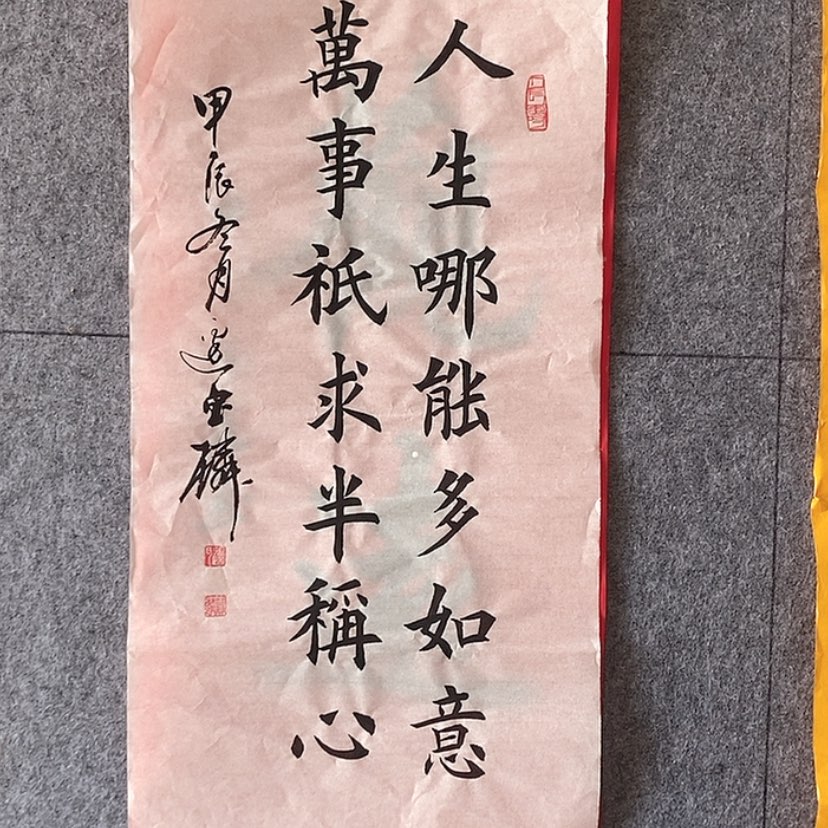 人生哪能多如意
萬事祇求半稱心
甲辰冬月